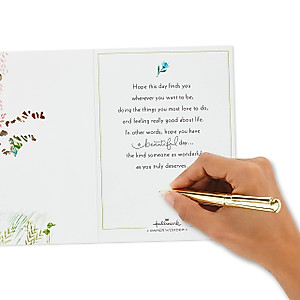 Hope this day finds you
wherever you want to be,
doing the things you most love to do,
and feeling really good about life.
In other words, hope you have
a beautiful day...
the kind someone as wonderful
as you truly deserves.
Hallmark
PAPER WONDER